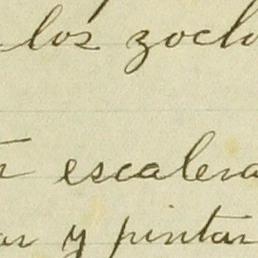 los zoclo
escalera
ar y pintar